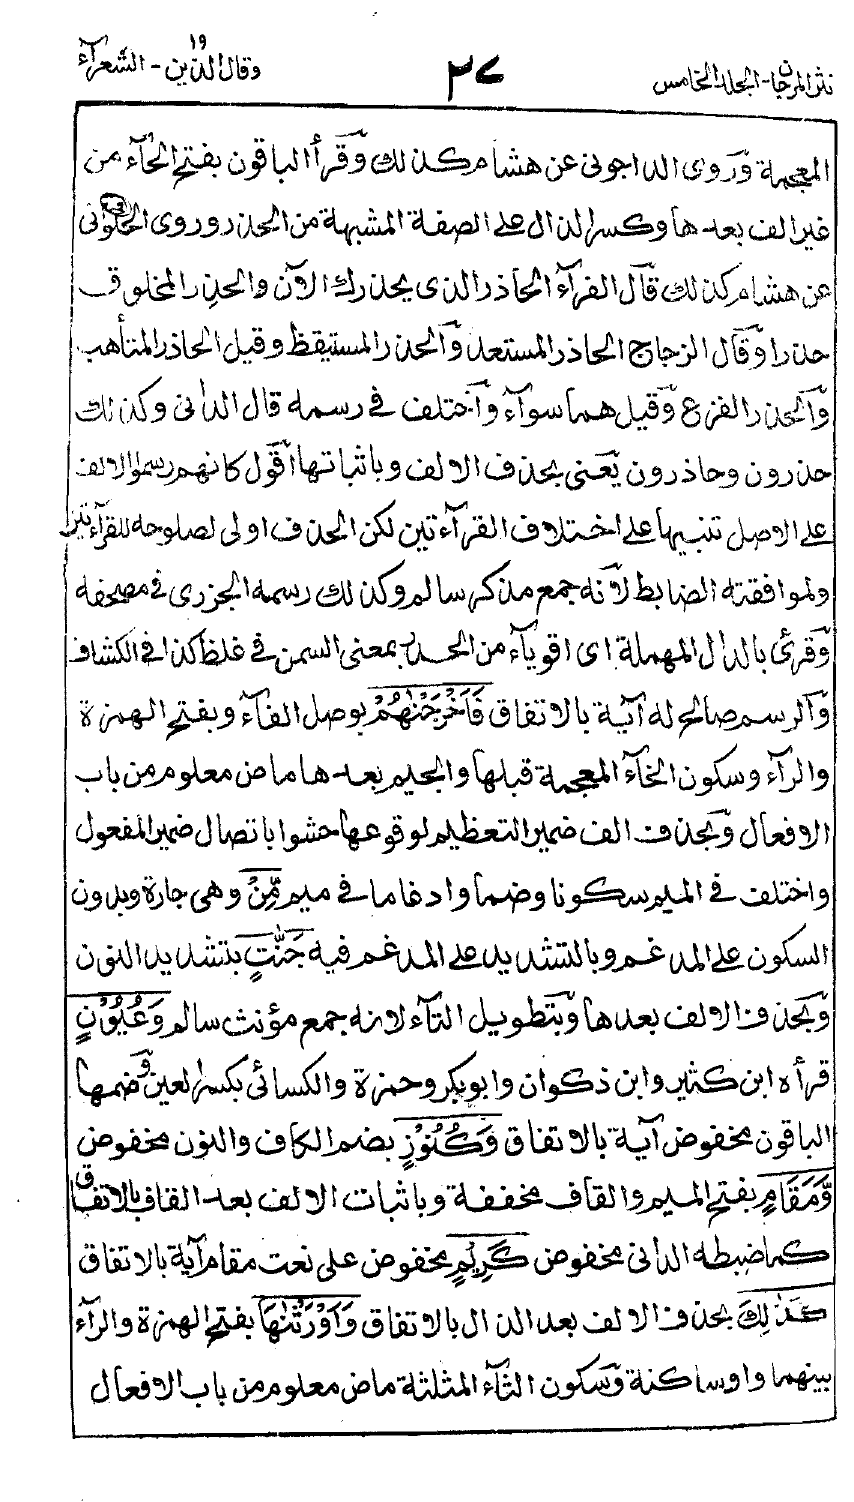 نثر المرجان - المجلد الخامس
٢٧
وقال الذين ١٩ - الشعرآء
المعجمة وَروى الداجونى عن هشام كذلك وَقرأ الباقون بفتح الحآء من
غير الف بعدها وكسر الذال على الصفة المشبهة من الحذر وروى الحلوانى
عن هشام كذلك قَال الفرآء الحاذر الذى يحذرك الآن والحذِر المخلوق
حذرا وَقال الزجاج الحاذر المستعد وَالحذر المستيقظ وقيل الحاذر المتأهب
وَالحذر الفزع وَقيل هما سوآء وَاختلف فى رسمه قال الدانى وكذلك
حذرون وحاذرون يَعنى بحذف الالف وباثباتها اقَول كانهم رسموا الالف
على الاصل تنبيها على اختلاف القرآءتين لكن الحذف اولى لصلوحه للقرآءتين
ولموافقته الضابط لاَنه جمع مذكر سالم وكذلك رسمه الجزرى فى مصحفه
وَقرئ بالدال المهملة اى اقويآء من الحدر بمعنى السمن فى غلظ كذا فى الكشاف
وَالرسم صالح له آية بالاتفاق فَاَخْرَجْنٰهُمْ بوصل الفآء وبفتح الهمزة
والرآء وسكون الخآء المعجمة قبلها والجيم بعدها ماض معلوم من باب
الافعال وَبحذف الف ضمير التعظيم لوقوعها حشوا باتصال ضمير المفعول
واختلف فى الميم سكونا وضما وادغاما فى ميم مِّنْ وهى جارة وبدون
السكون على المدغم وبالتشديد على المدغم فيه جَنّٰتٍ بتشديد النون
وَبحذف الالف بعدها وَبتطويل التآء لانه جمع مؤنث سالم وَعُيُوْنٍ
قرأه ابن كثير وابن ذكوان وابوبكر وحمزة والكسائى بكسر العين وَضمها
الباقون مخفوض آية بالاتفاق وَكُنُوْزٍ بضم الكاف والنون مخفوض
وَمَقَامٍ بفتح الميم والقاف مخففة وباثبات الالف بعد القاف بالاتفاق
كما ضبطه الدانى مخفوض كَرِيْمٍ مخفوض على نعت مقام آية بالاتفاق
كَذٰلِكَ بحذف الالف بعد الذال بالاتفاق وَاَوْرَثْنٰهَا بفتح الهمزة والرآء
بينهما واو ساكنة وَسكون الثآء المثلثة ماض معلوم من باب الافعال